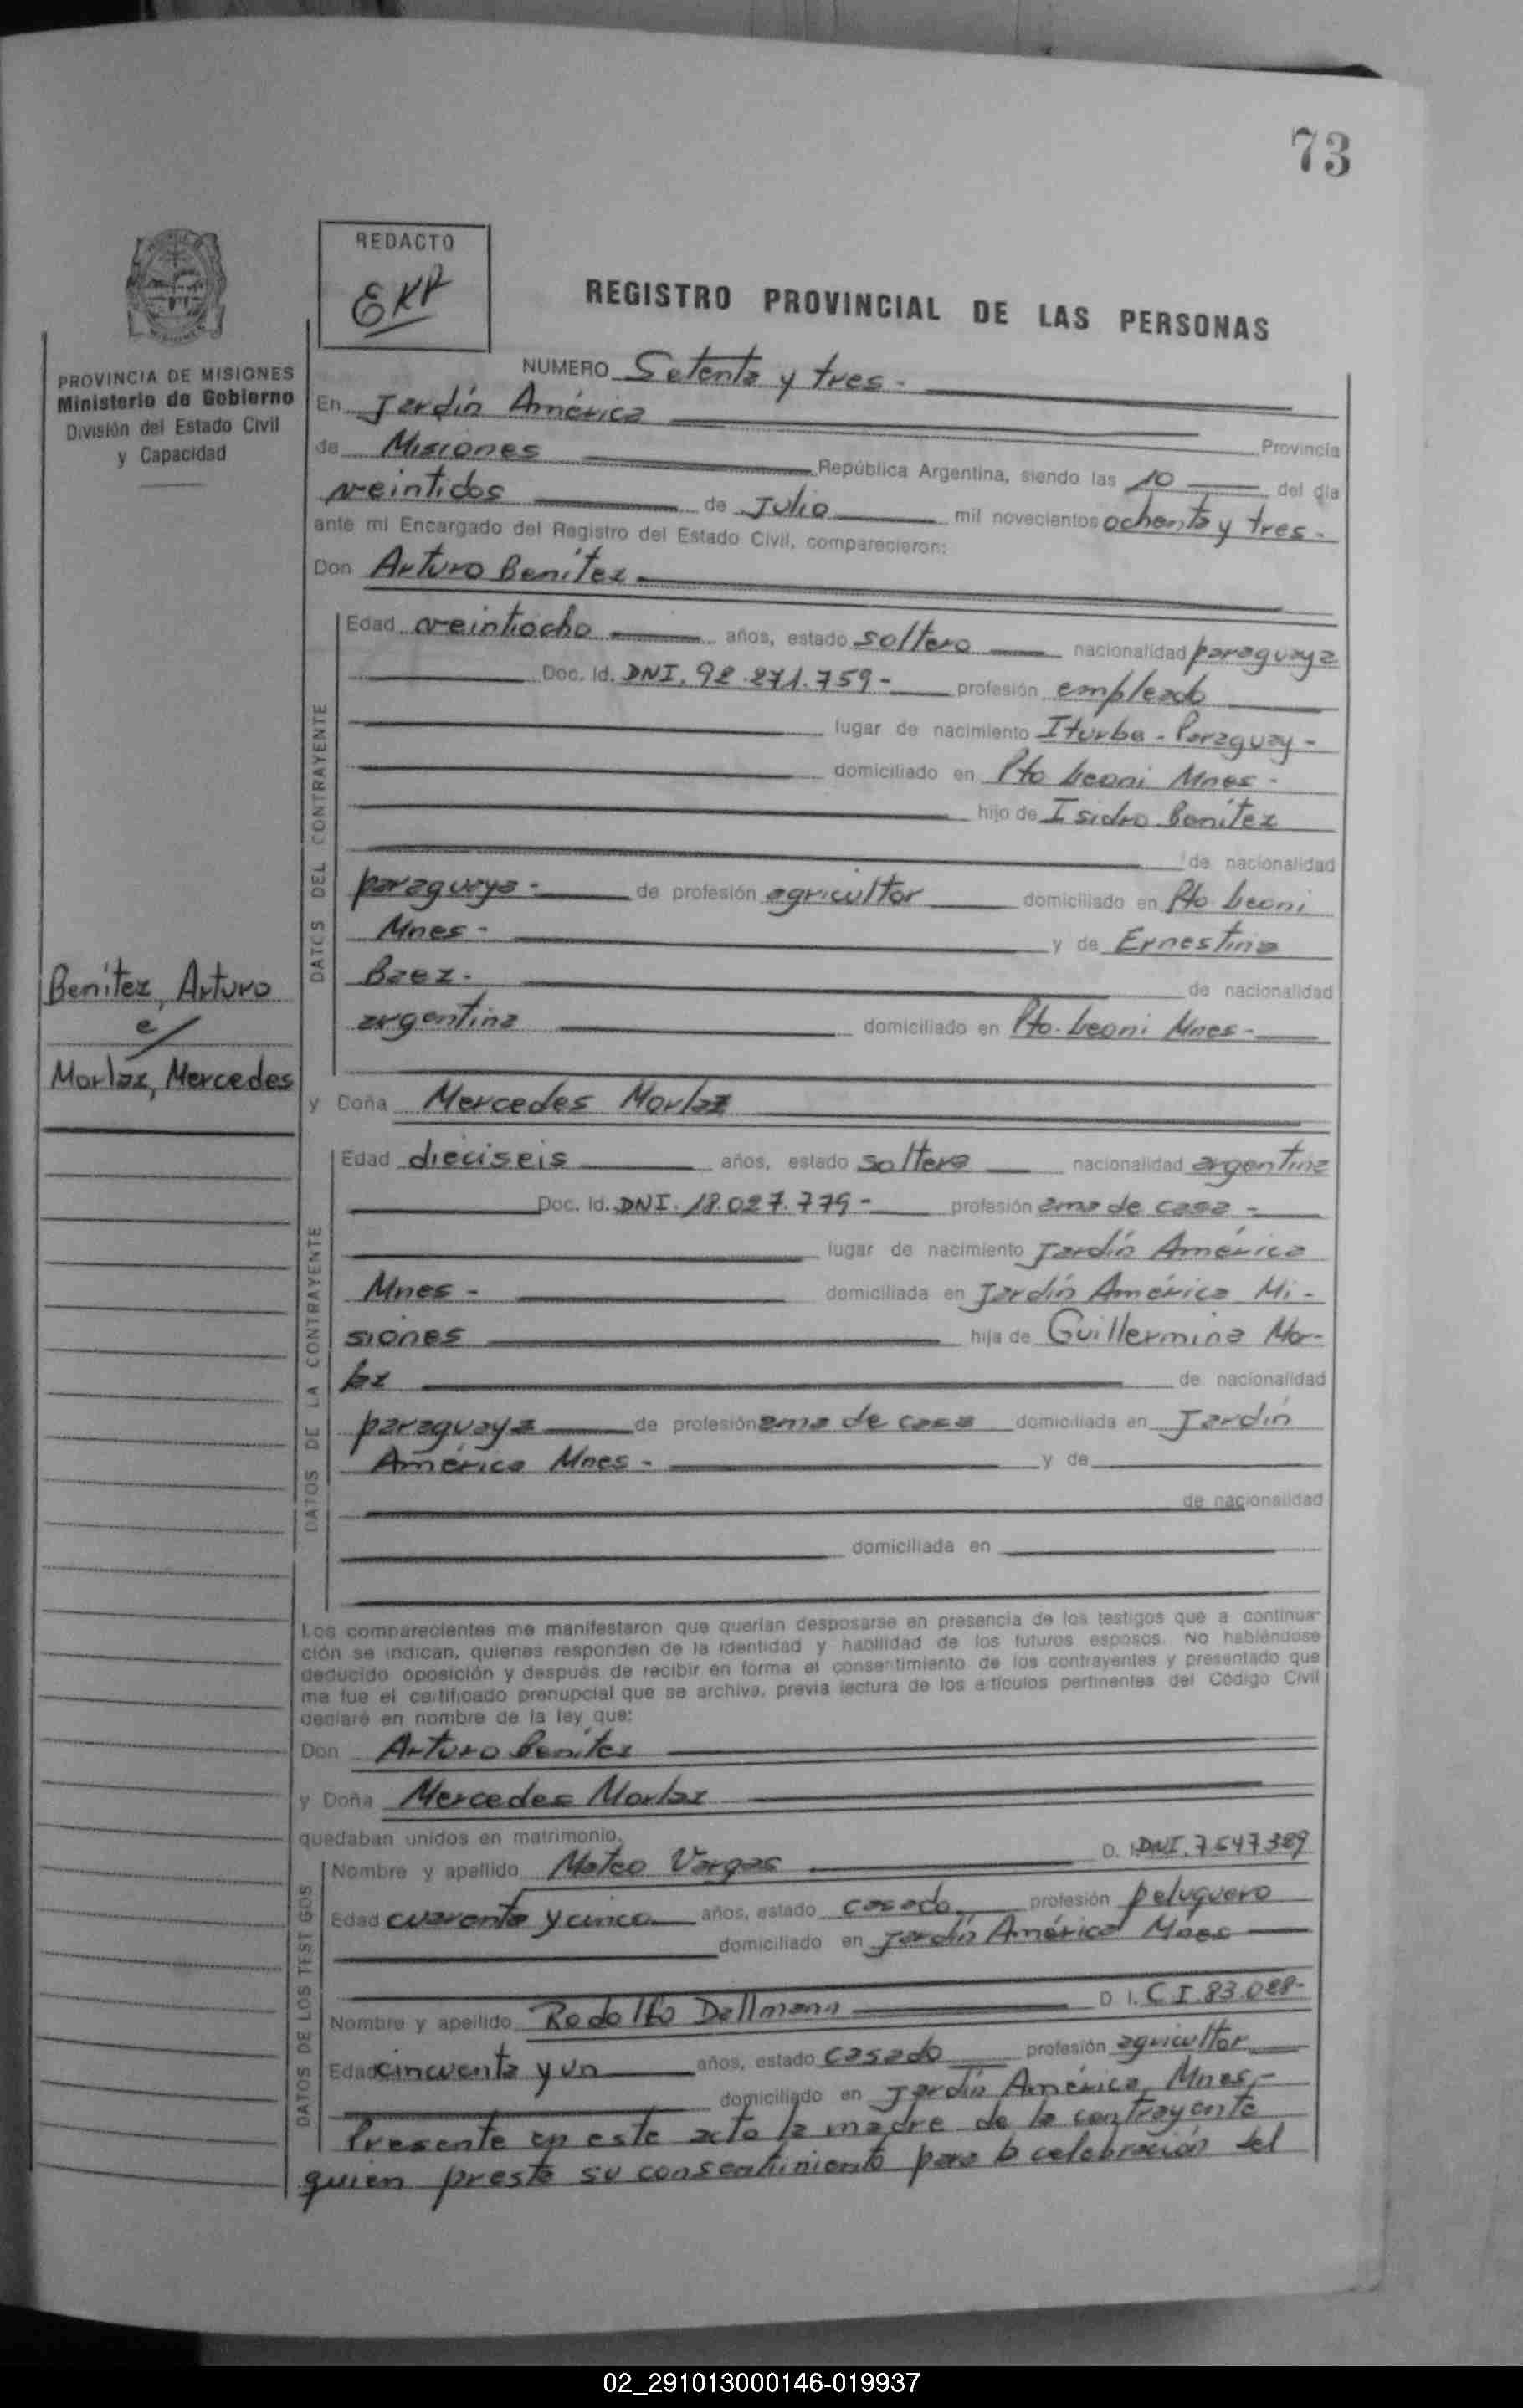 73
REDACTO
EKP
REGISTRO PROVINCIAL DE LAS PERSONAS
PROVINCIA DE MISIONES
Ministerio de Gobierno
División del Estado Civil
y Capacidad
NUMERO Setenta y tres -
En Jardín América Provincia
de Misiones República Argentina, siendo las 10 del día
veintidos de Julio mil novecientos ochenta y tres -
ante mi Encargado del Registro del Estado Civil, comparecieron:
Don Arturo Benítez
DATOS DEL CONTRAYENTE
Edad veintiocho años, estado soltero nacionalidad paraguaya
Doc. Id. DNI. 92.271.759 - profesión empleado
lugar de nacimiento Iturbe - Paraguay -
domiciliado en Pto Leoni Mnes -
hijo de Isidro Benítez
de nacionalidad
paraguaya - de profesión agricultor domiciliado en Pto. Leoni
Mnes - y de Ernestina
Baez - de nacionalidad
argentina domiciliado en Pto. Leoni Mnes -
Benítez, Arturo
c/
Morlaz, Mercedes
y Doña Mercedes Morlaz
DATOS DE LA CONTRAYENTE
Edad dieciseis años, estado soltera nacionalidad argentina
Doc. Id. DNI. 18.027.779 - profesión ama de casa -
lugar de nacimiento Jardín América
Mnes - domiciliada en Jardín América Mi-
siones hija de Guillermina Mor-
laz de nacionalidad
paraguaya de profesión ama de casa domiciliada en Jardín
América Mnes - y de
de nacionalidad
domiciliada en
Los comparecientes me manifestaron que querían desposarse en presencia de los testigos que a continua-
ción se indican, quienes responden de la identidad y habilidad de los futuros esposos. No habiéndose
deducido oposición y después de recibir en forma el consentimiento de los contrayentes y presentado que
me fue el certificado prenupcial que se archiva, previa lectura de los artículos pertinentes del Código Civil
declaré en nombre de la ley que:
Don Arturo Benítez
y Doña Mercedes Morlaz
quedaban unidos en matrimonio.
DATOS DE LOS TESTIGOS
Nombre y apellido Mateo Vargas D. I. DNI. 7.547.389
Edad cuarenta y cinco años, estado casado profesión peluquero
domiciliado en Jardín América Mnes
Nombre y apellido Rodolfo Dellmann D. I. C I. 83.088-
Edad cincuenta y un años, estado casado profesión agricultor
domiciliado en Jardín América, Mnes,-
Presente en este acto la madre de la contrayente
quien presta su consentimiento para la celebración del
02_291013000146-019937